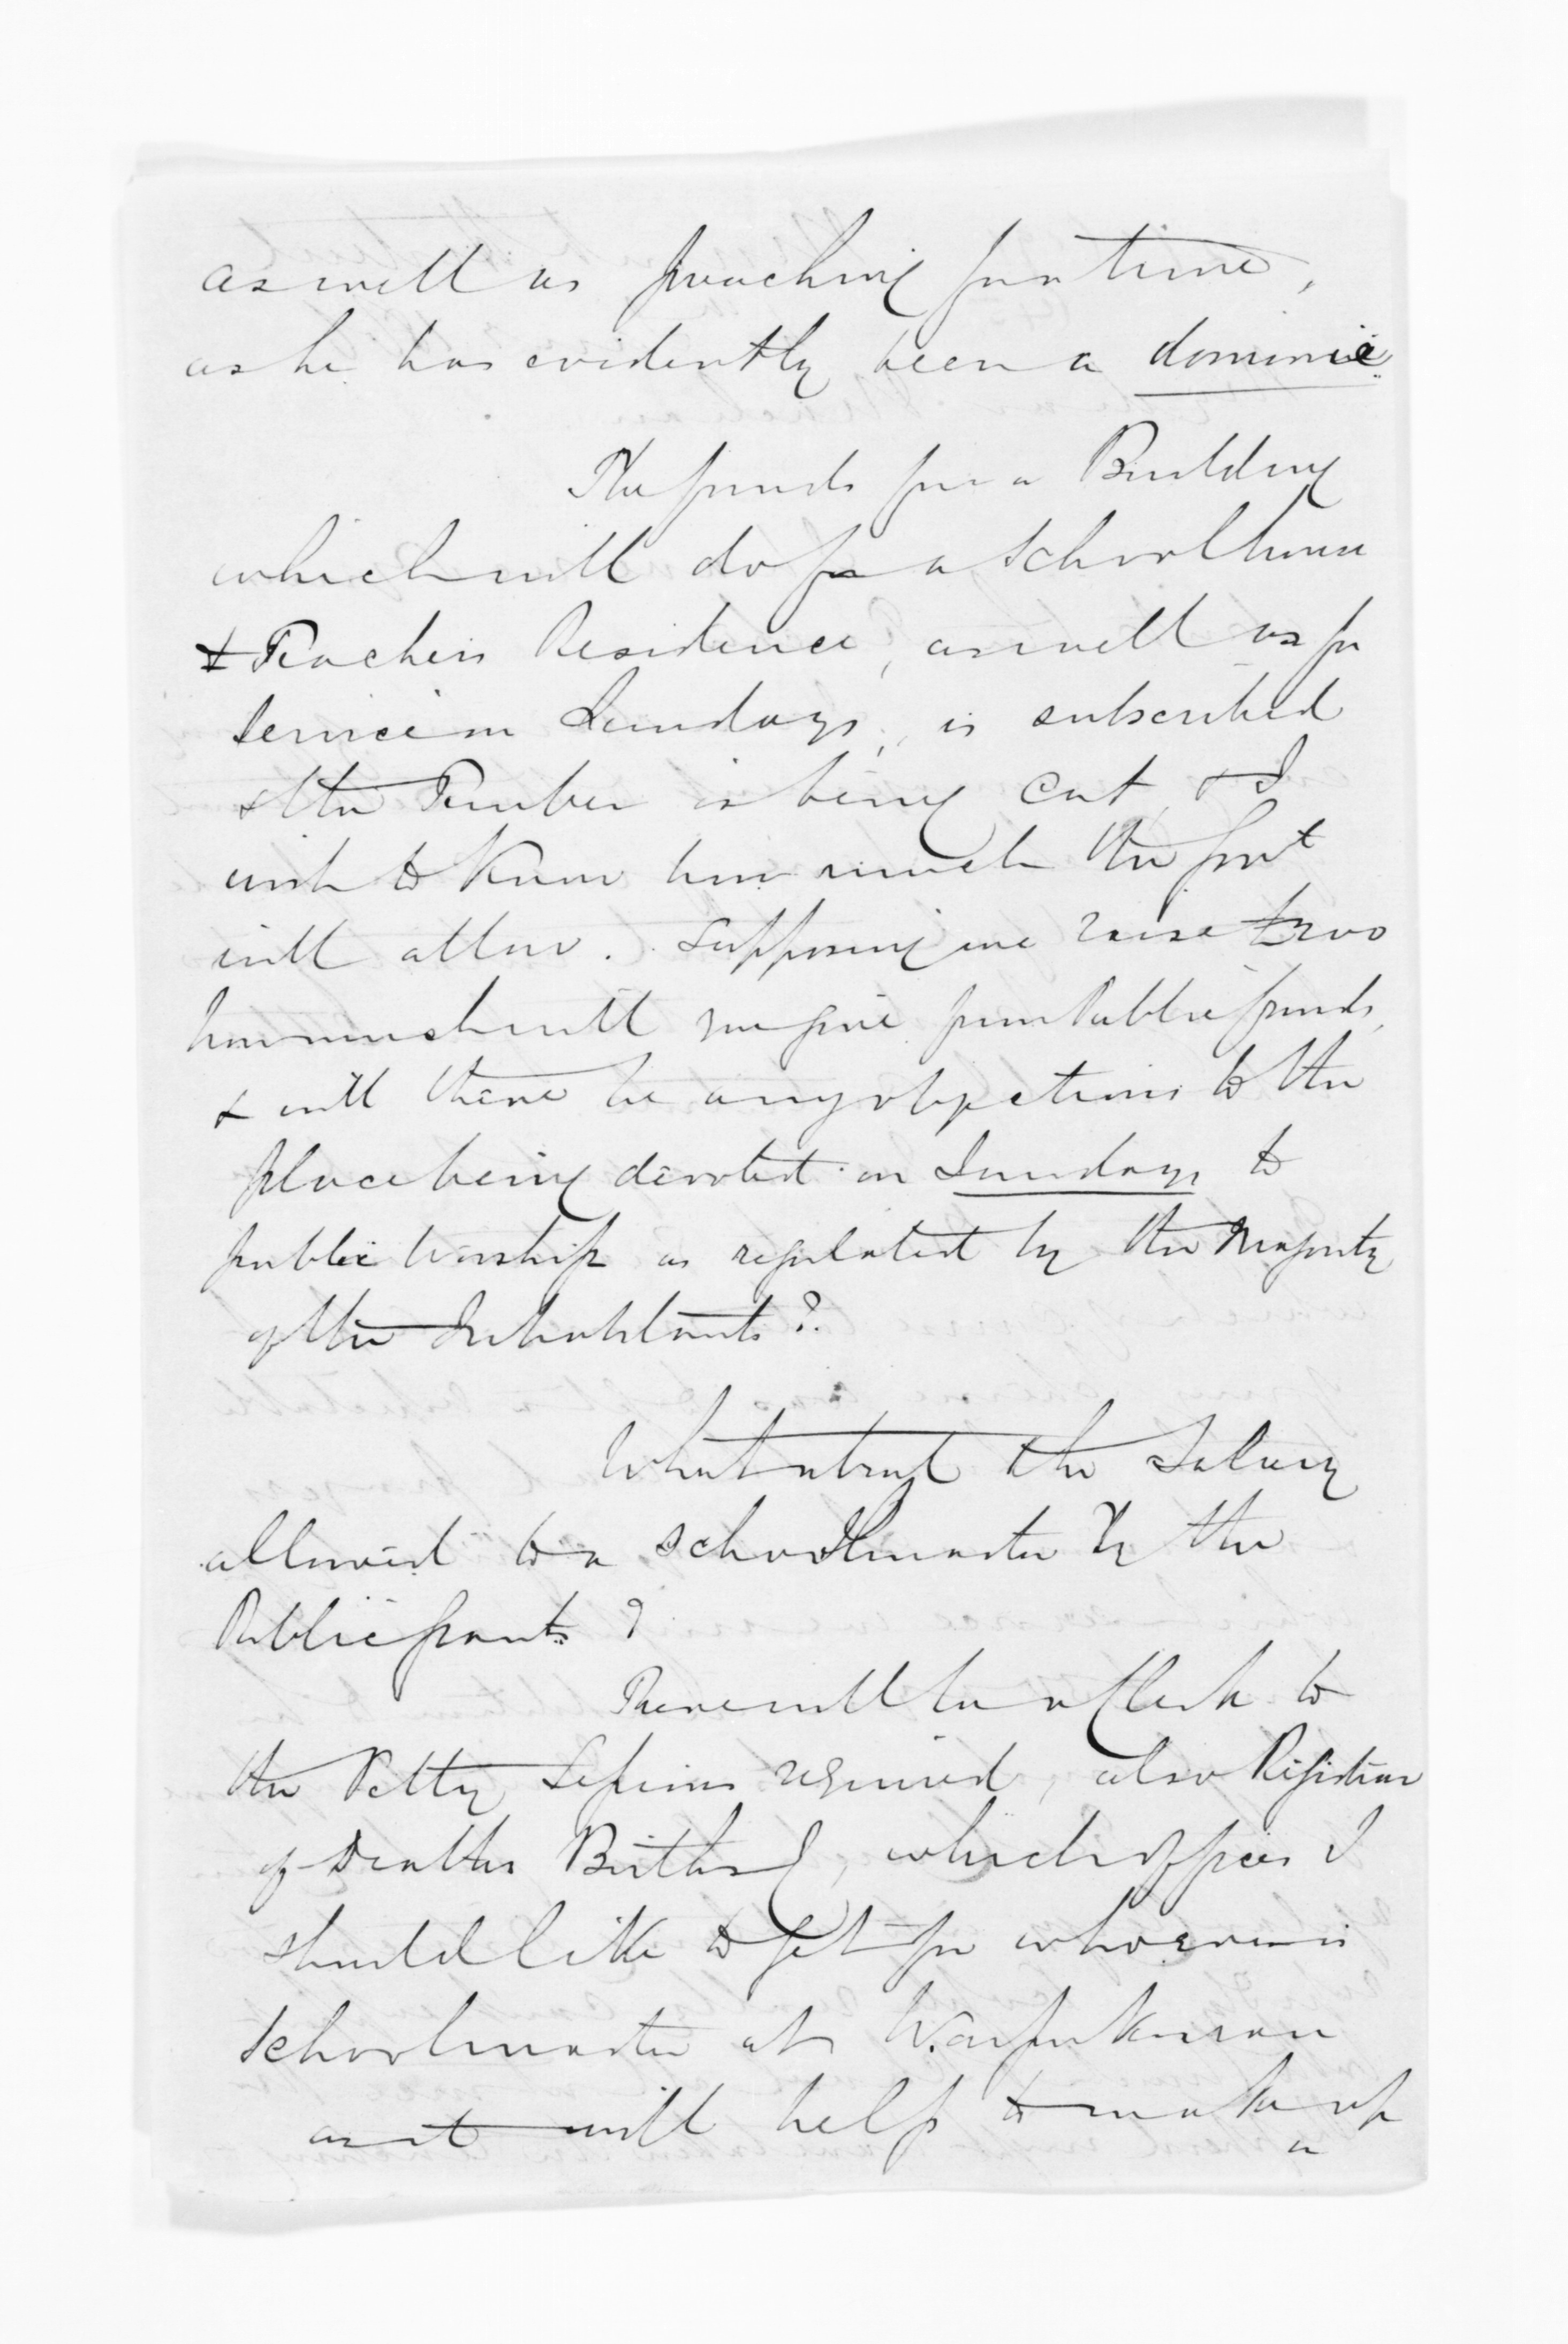 as well as preaching for a time,
as he has evidently been a dominie.
The funds for a Building
which will do for a Schoolhouse
& Teachers Residence, as well as for
Service on Sundays, is subscribed
& the Timber is being cut, & I
wish to know how much the Govt
will allow. Supposing we raise £200
how much will you give from Public funds,
& will there be any objections to the
place being devoted on Sundays to
public Worship as regulated by the Majority
of the Inhabitants?
What about the Salary
allowed to a schoolmaster by the
Public grants?
There will be a Clerk to
the Petty Sessions required, also Registrar
of Deaths Births &, which offices I
should like to get for whoever is
Schoolmaster at Waipukurau
as it will help to make up
a